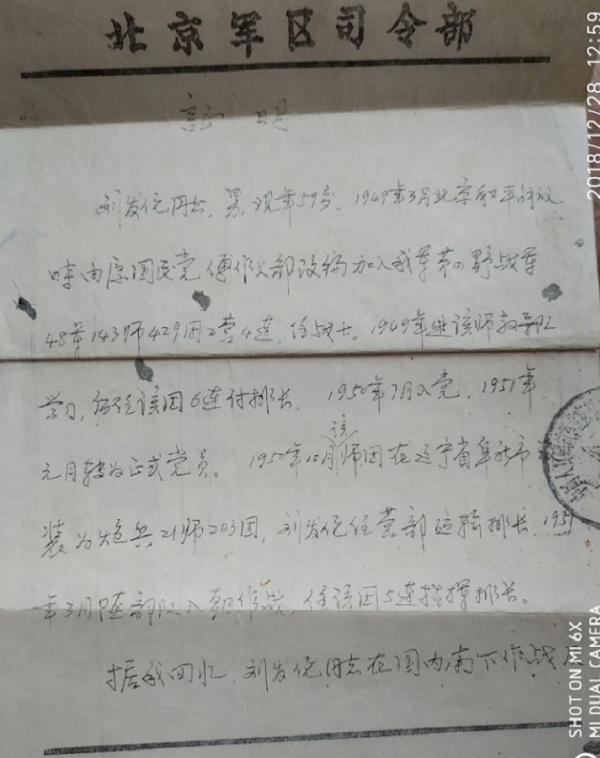 北京军区司令部
証 明
刘发优同志,男,现年59岁,1949年3月北京和平解放
时由原国民党傅作义部改编加入我军第四野战军
48军143师429团2营4连,任战士。1949年进该师教导队
学习,后任该团6连付排长。1950年7月入党,1951年
元月转为正式党员。1950年10月该师团在辽宁省阜新市
装为炮兵21师203团,刘发优任营部运输排长,1951
年3月随部队入朝作战,任该团5连指挥排长。
据我回忆,刘发优同志在国内南下作战
2018/12/28 12:59
SHOT ON MI 6X
MI DUAL CAMERA